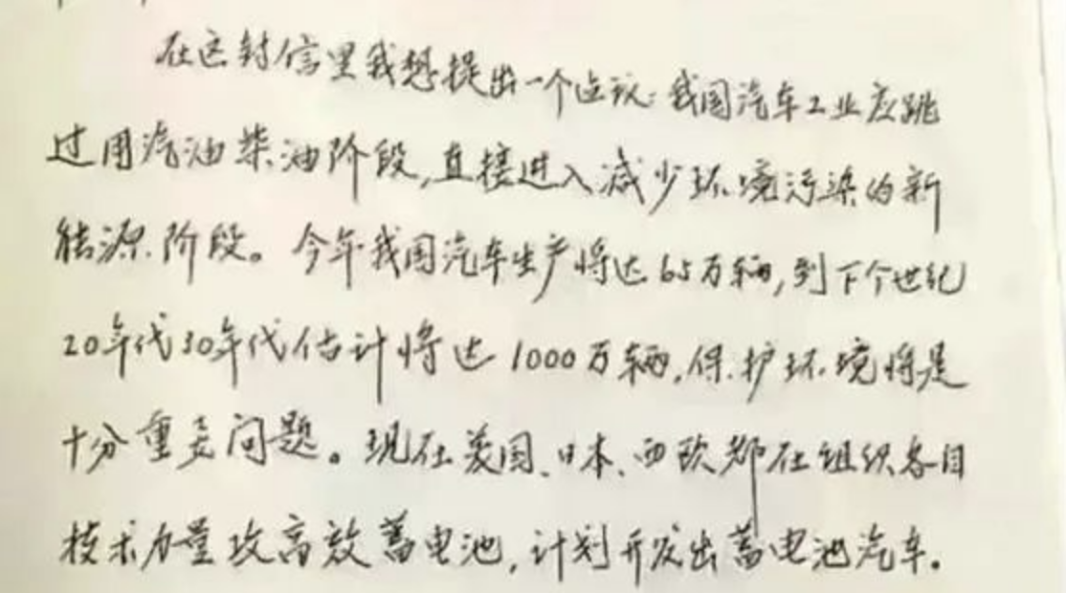 在这封信里我想提出一个建议：我国汽车工业应跳
过用汽油柴油阶段，直接进入减少环境污染的新
能源阶段。今年我国汽车生产将达65万辆，到下个世纪
20年代30年代估计将达1000万辆，保护环境将是
十分重要问题。现在美国、日本、西欧都在组织各自
技术力量攻高效蓄电池，计划开发出蓄电池汽车。